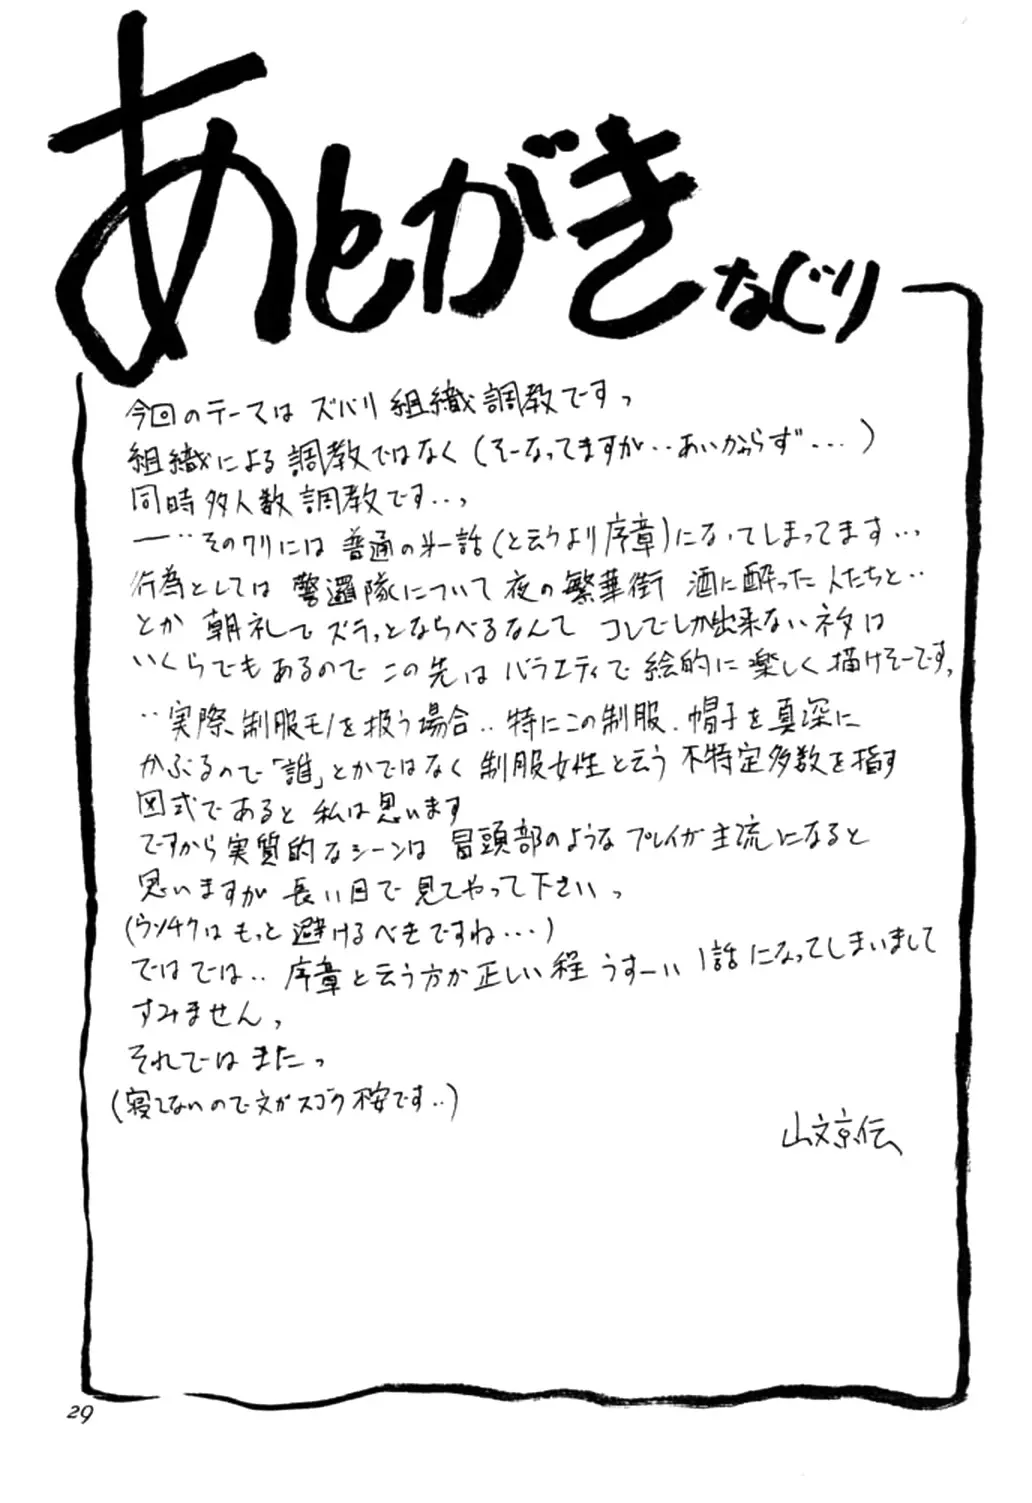 あとがき なぐり
今回のテーマは ズバリ 組織調教ですっ
組織による調教ではなく(そーなってますが‥あいかわらず…)
同時多人数調教です‥っ
一‥そのワリには 普通の第一話(と云うより序章)になってしまってます…
行為としては 警邏隊について 夜の繁華街 酒に酔った人たちと‥
とか 朝礼で ズラっとならべるなんて コレでしか出来ないネタは
いくらでもあるので この先は バラエティで 絵的に 楽しく 描けそーです、
‥実際、制服モノを扱う場合‥特にこの制服、帽子を真深に
かぶるので「誰」とかではなく 制服女性と云う 不特定多数を指す
図式であると 私は思います
ですから実質的なシーンは 冒頭部のような プレイが主流になると
思いますが 長い目で 見てやって下さいっ
(ウンチクはもっと避けるべきですね…)
ではでは‥ 序章と云う方が正しい程 うすーい 1話になってしまいまして
すみません、
それでは またっ
(寝てないので文がスゴク不安です‥)
山文京伝
29